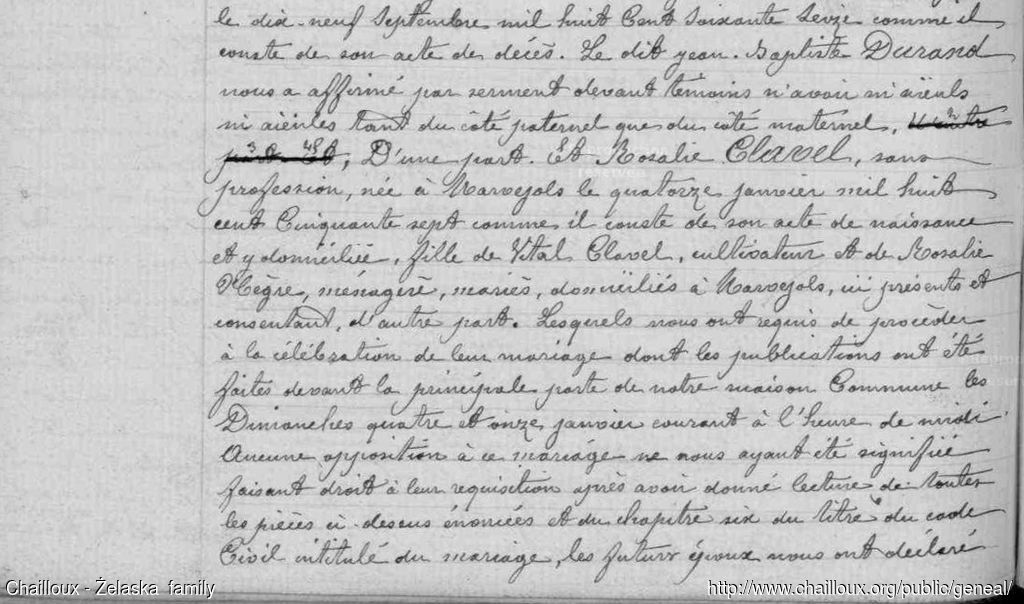 le dix-neuf Septembre mil huit Cent Soixante Seize comme il
conste de son acte de décès. Le dit jean-Baptiste Durand
nous a affirmé par serment devant témoins n'avoir ni aïeuls
ni aïeules tant du côté paternel que du côté maternel,
D'une part. Et Rosalie Clavel, sans
profession, née à Marvejols le quatorze janvier mil huit
cent Cinquante sept comme il conste de son acte de naissance
et y domiciliée, fille de Vital Clavel, cultivateur et de Rosalie
Nègre, ménagère, mariés, domiciliés à Marvejols, ici présents et
consentant, d'autre part. Lesquels nous ont requis de procèder
à la célébration de leur mariage dont les publications ont été
faites devant la principale porte de notre maison Commune les
Dimanches quatre et onze janvier courant à l'heure de midi.
Aucune opposition à ce mariage ne nous ayant été signifiée
faisant droit à leur requisition après avoir donné lecture de toutes
les pièces ci-dessus énoncées et du chapitre six du titre du code
Civil intitulé du mariage, les futurs époux nous ont déclaré
Chailloux - Żelaska family
http://www.chailloux.org/public/geneal/